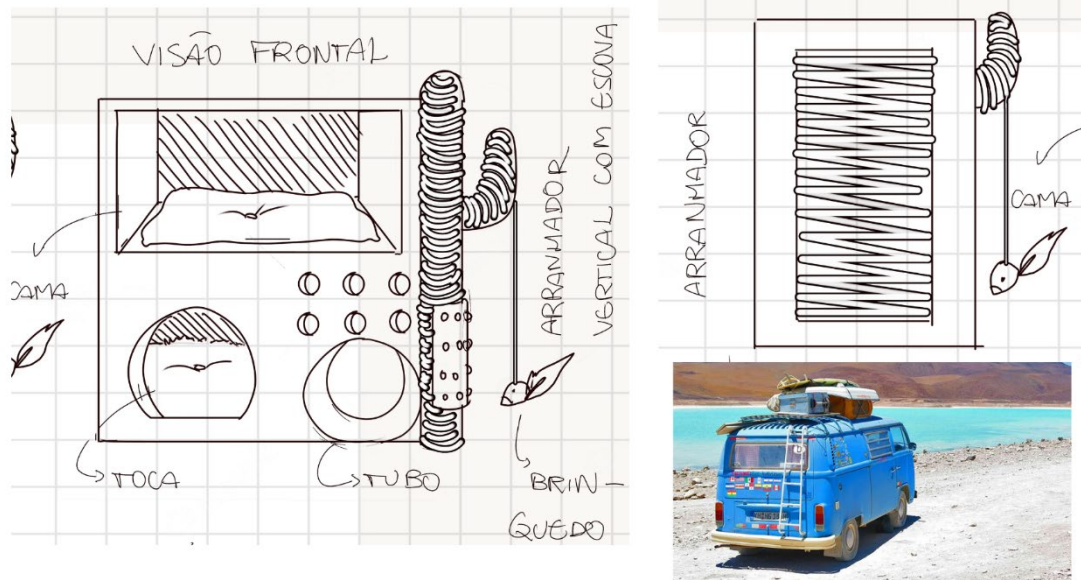 VISÃO FRONTAL
CAMA
TOCA
TUBO
BRIN-
QUEDO
ARRANHADOR
VERTICAL COM ESCOVA
ARRANHADOR
CAMA